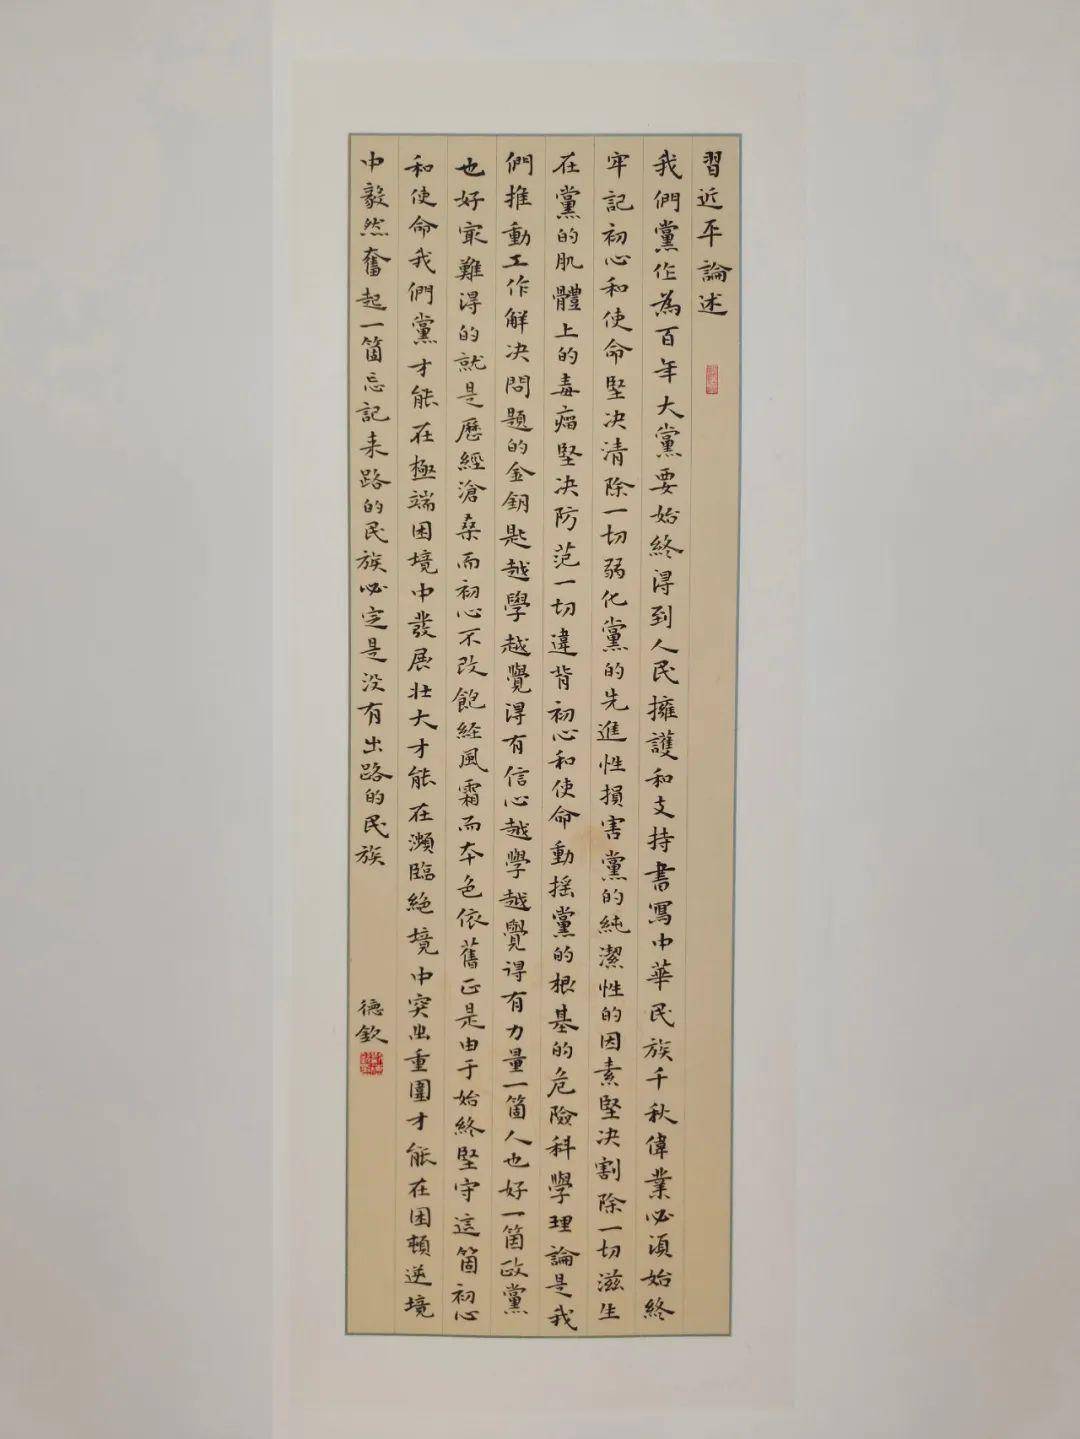 習近平論述
我們黨作為百年大黨要始終得到人民擁護和支持書寫中華民族千秋偉業必須始終
牢記初心和使命堅決清除一切弱化黨的先進性損害黨的純潔性的因素堅決割除一切滋生
在黨的肌體上的毒瘤堅決防范一切違背初心和使命動搖黨的根基的危險科學理論是我
們推動工作解決問題的金鑰匙越學越覺得有信心越學越覺得有力量一箇人也好一箇政黨
也好最難得的就是歷經滄桑而初心不改飽經風霜而本色依舊正是由于始終堅守這箇初心
和使命我們黨才能在極端困境中發展壯大才能在瀕臨絕境中突出重圍才能在困頓逆境
中毅然奮起一箇忘記來路的民族必定是没有出路的民族
德欽